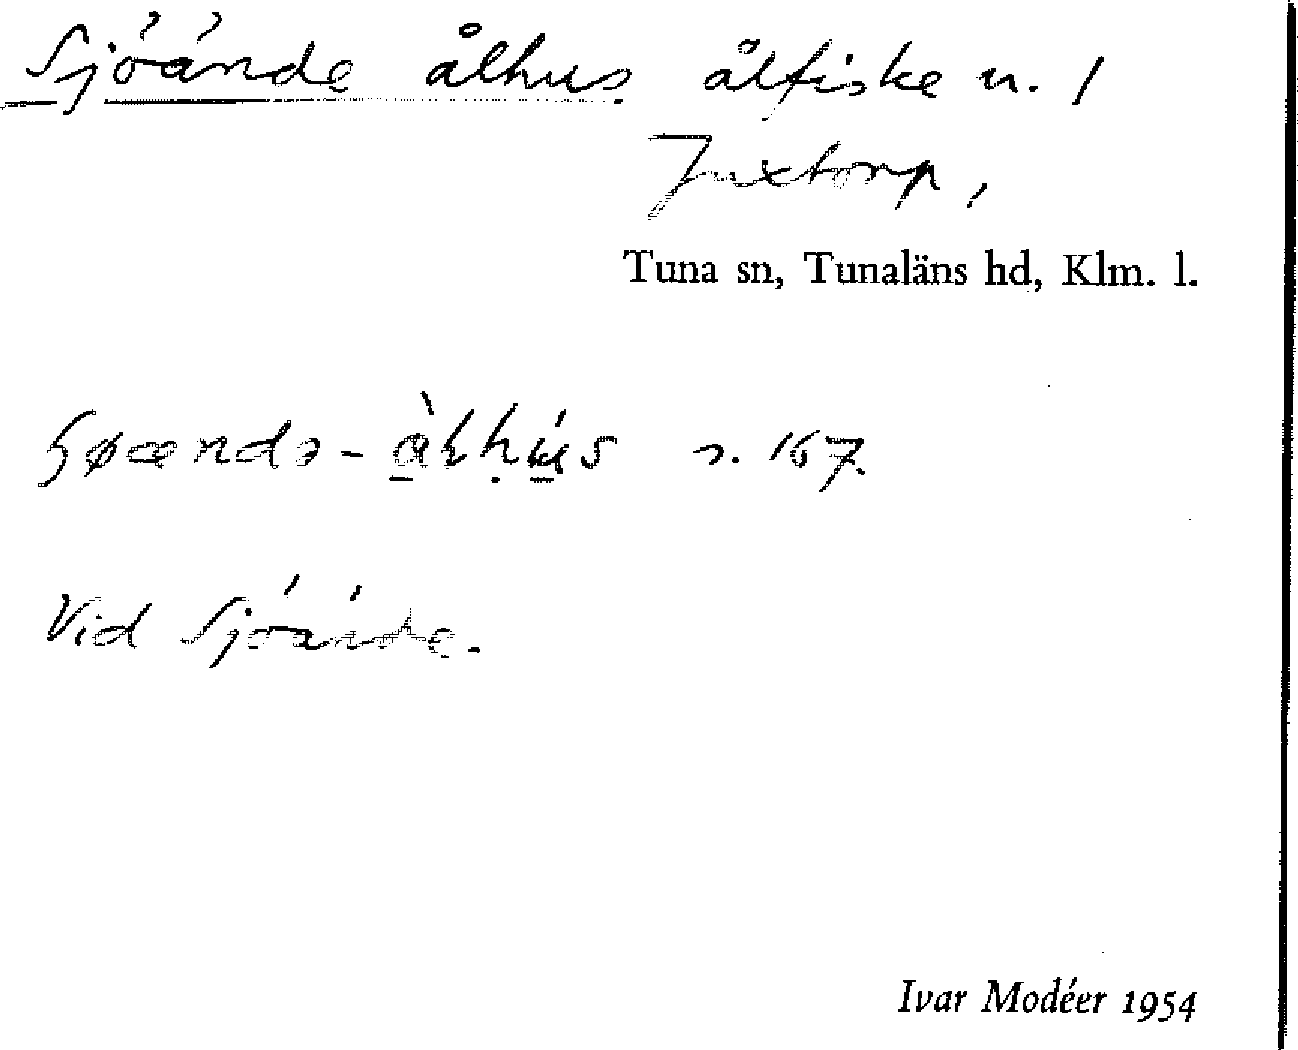 Sjöände ålhus ålfiske n. 1
Juxtorp,
Tuna sn, Tunaläns hd, Klm. l.
s. 167.
Vid Sjöände.
Ivar Modéer 1954